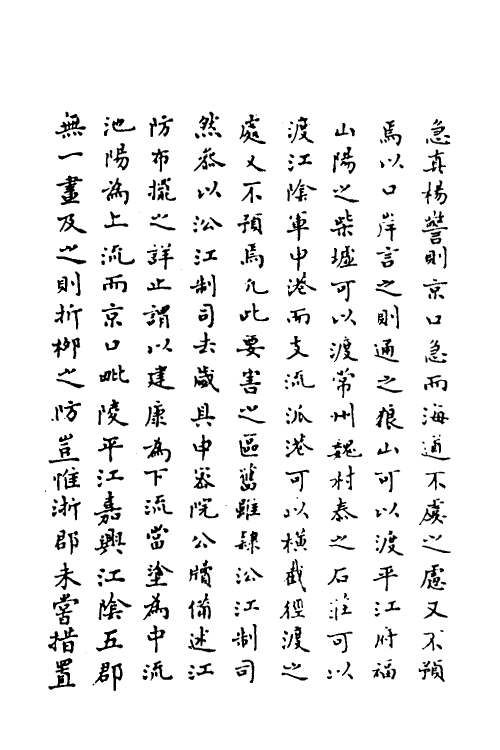 急真楊警則京口急而海道不虞之慮又不預
焉以口岸言之則通之狼山可以渡平江府福
山陽之柴墟可以渡常州魏村泰之石莊可以
渡江陰軍申港而支流派港可以橫截徑渡之
處又不預焉凡此要害之區舊雖隸㳂江制司
然叅以㳂江制司去歲具申密院公牘備述江
防布擺之詳止謂以建康為下流當塗為中流
池陽為上流而京口毗陵平江嘉興江陰五郡
無一畫及之則折柳之防豈惟浙郡未嘗措置